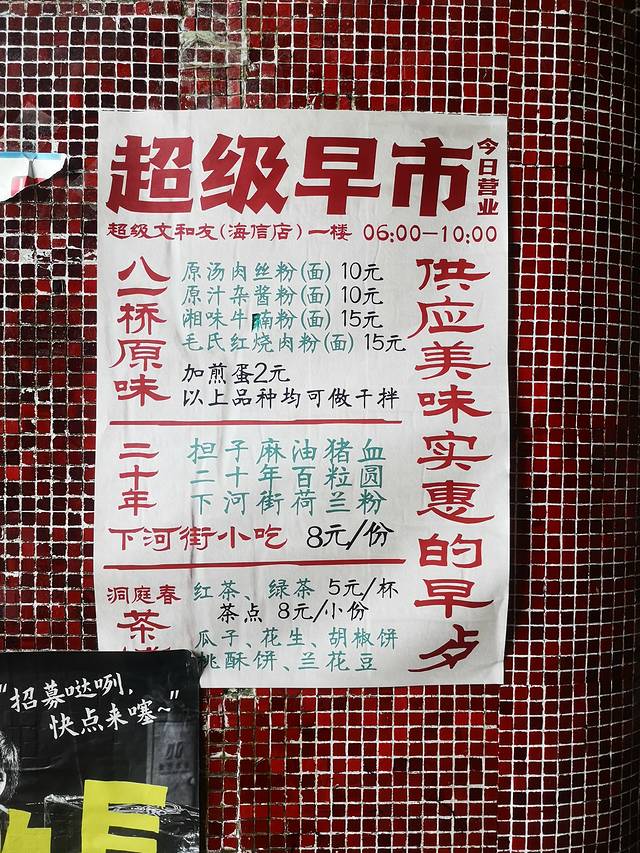 超级早市
今日营业
超级文和友(海信店)一楼 06:00—10:00
供应美味实惠的早夕
八一桥原味
原汤肉丝粉(面) 10元
原汁杂酱粉(面) 10元
湘味牛腩粉(面) 15元
毛氏红烧肉粉(面) 15元
加煎蛋2元
以上品种均可做干拌
二十年
担子麻油猪血
二十年百粒圆
下河街荷兰粉
下河街小吃 8元/份
洞庭春
茶
红茶、绿茶 5元/杯
茶点 8元/小份
瓜子、花生、胡椒饼
桃酥饼、兰花豆
“招募哒咧,
快点来噻~”